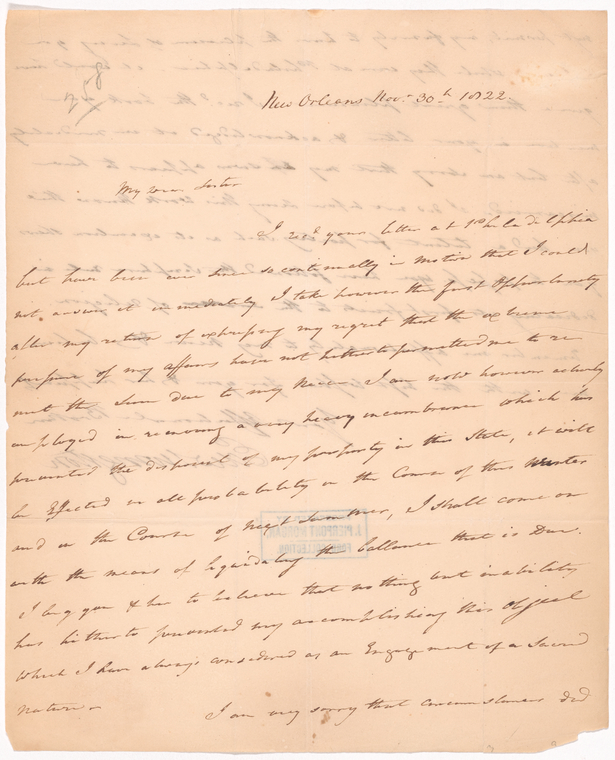 New Orleans Nov.r 30th 1822
My Dear Sister
I recd. your letter at Philadelphia
but have been ever since so continually in motion that I could
not answer it immediately I take however the first Opportunity
after my return of expressing my regret that the extreme
pressure of my affairs have not hitherto permitted me to re
mit the Sum due to my Niece. I am now however actively
employed in removing a very heavy incumbrance which has
prevented the disposal of my property in this State, it will
be Effected in all probability in the Course of this Winter
and in the Course of next Summer, I shall come on
with the means of liquidating the ballance that is Due.
I beg you & her to believe that nothing but inability
has hitherto prevented my accomplishing this Object
which I have always considered as an Engagement of a Sacred
nature.
I am very sorry that circumstances did